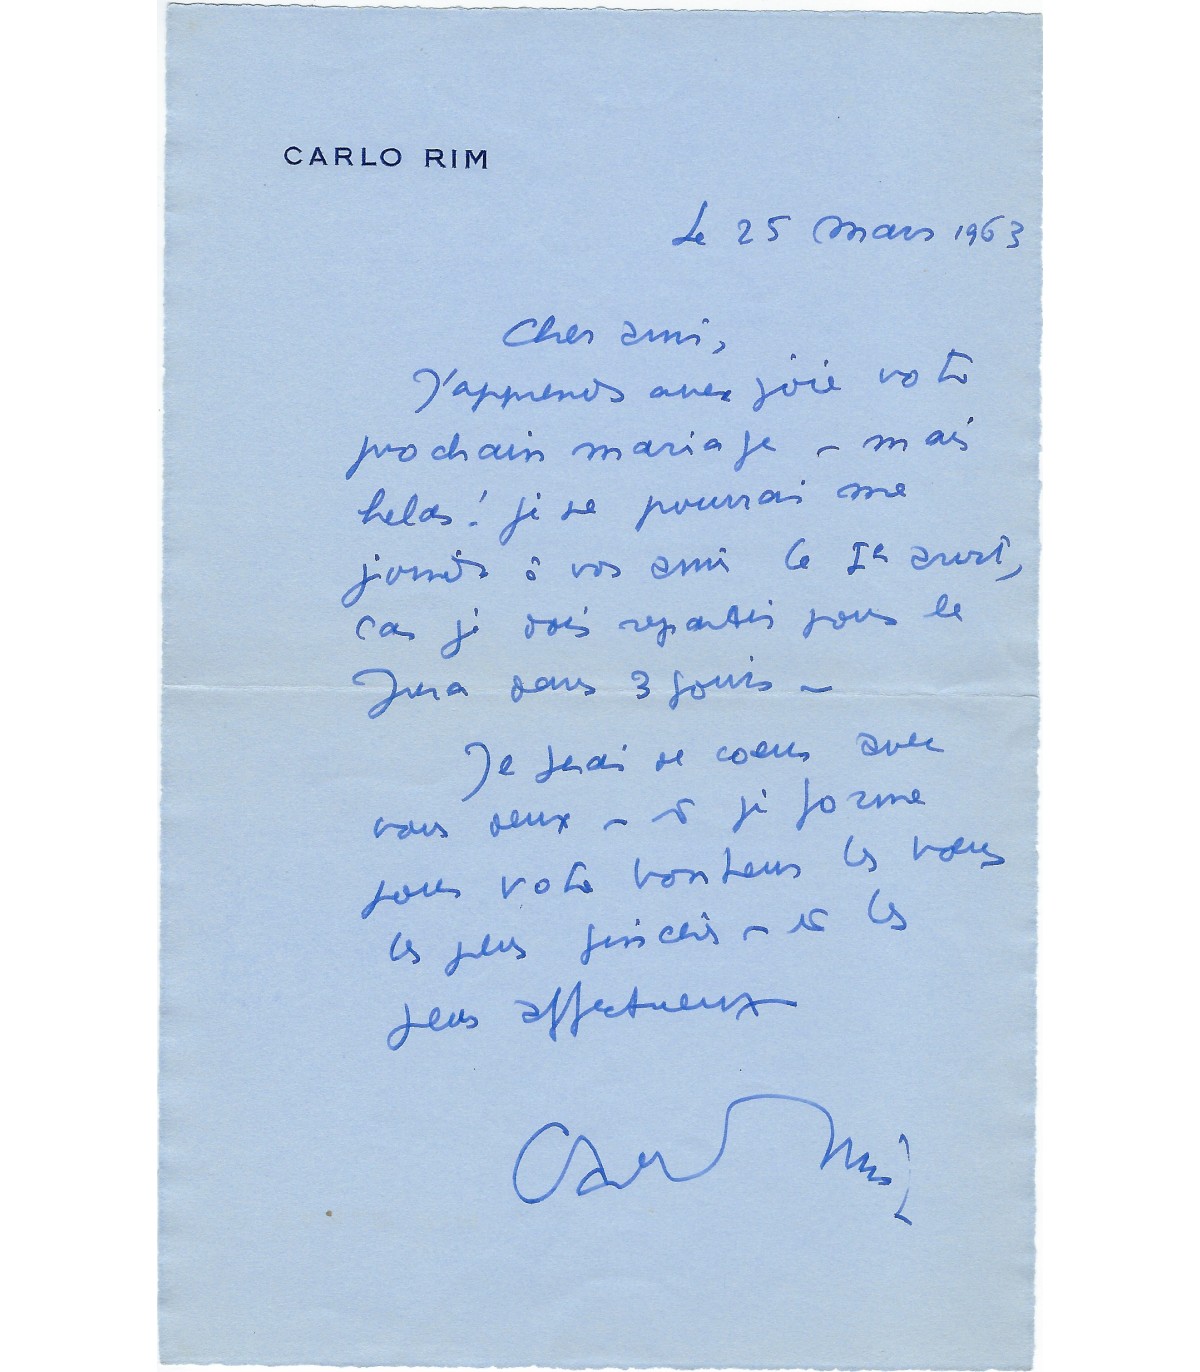 CARLO RIM
Le 25 mars 1963
Cher ami,
J'apprends avec joie votre
prochain mariage – mais
helas! je ne pourrai me
joindre à vos amis le Ier avril,
car je dois repartir pour le
Jura dans 3 jours –
Je serai de coeur avec
vous deux – et je forme
pour votre bonheur les voeux
les plus sincères – et les
plus affectueux
Carlo Rim